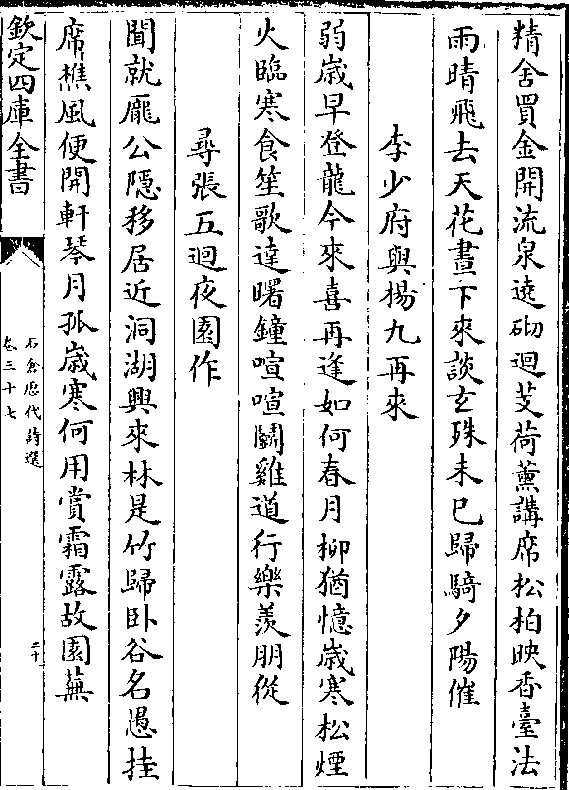 精舍買金開流泉遶砌迴芰荷薰講席松柏映香臺法
雨晴飛去天花晝下來談玄殊未已歸騎夕陽催
李少府與楊九再來
弱歳早登龍今來喜再逢如何春月柳猶憶歳寒松煙
火臨寒食笙歌達曙鐘喧喧鬬雞道行樂羨朋從
尋張五迴夜園作
聞就龎公隱移居近洞湖興來林是竹歸卧谷名愚挂
席樵風便開軒琴月孤歳寒何用賞霜露故園蕪
欽定四庫全書
石倉歴代詩選
卷三十七
二十